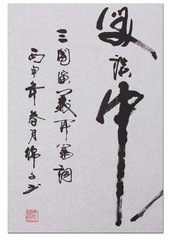 笑談中
三國演義開篇詞
丙申年春月